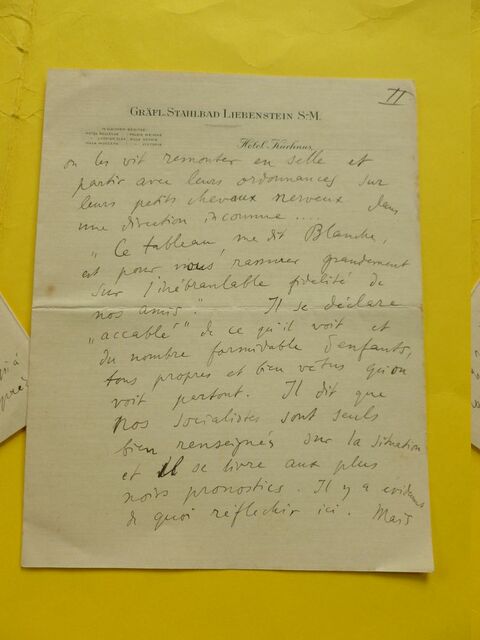 II
GRÄFL. STAHLBAD LIEBENSTEIN S.-M.
Hotel Kurhaus
on les vit remonter en selle et
partir avec leurs ordonnances sur
leurs petits chevaux nerveux dans
une direction inconnue ....
„Ce tableau, me dit Blanche,
est pour nous rassurer grandement
sur l'inébranlable fidélité de
nos amis". Il se déclare
„accablé" de ce qu'il voit et
du nombre formidable d'enfants,
tous propres et bien vêtus qu'on
voit partout. Il dit que
nos socialistes sont seuls
bien renseignés sur la situation
et Il se livre aux plus
noirs pronostics. Il y a évidemmt
de quoi réfléchir ici. Mais